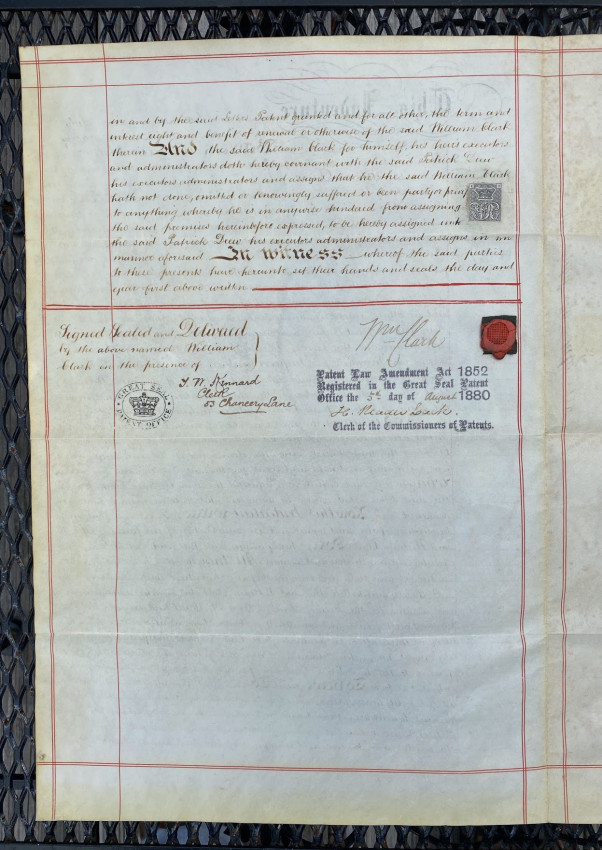 in and by the said Letters Patent granted and for all other, the term and
interest right and benefit of renewal or otherwise of the said William Clark
therein And the said William Clark for himself, his heirs executors
and administrators doth hereby covenant with the said Patrick Drew
his executors administrators and assigns that he the said William Clark
hath not done, omitted or knowingly suffered or been party or privy
to anything whereby he is in anywise hindered from assigning
the said premises hereinbefore expressed, to be hereby assigned unto
the said Patrick Drew his executors administrators and assigns in
manner aforesaid In witness whereof the said parties
to these presents have hereunto set their hands and seals the day and
year first above written
Signed Sealed and Delivered
by the above named William
Clark in the presence of
T. W. Kennard
Clerk
53 Chancery Lane
GREAT SEAL
PATENT OFFICE
Wm Clark
VR
Patent Law Amendment Act 1852
Registered in the Great Seal Patent
Office the 5th day of August 1880
H. Reader Lack.
Clerk of the Commissioners of Patents.